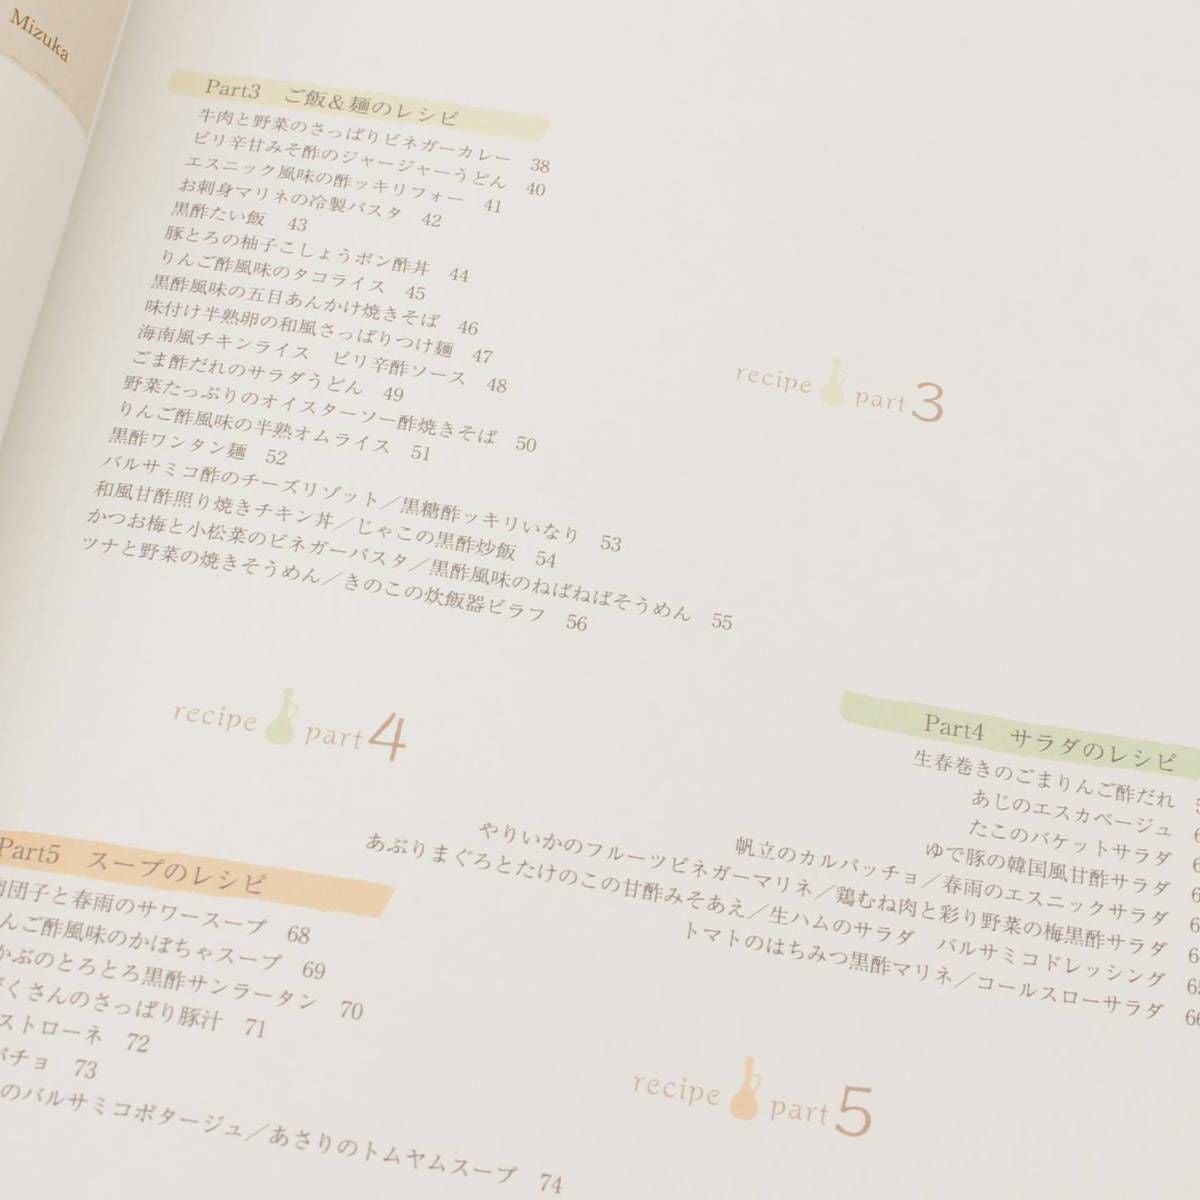 Mizuka
Part3 ご飯&麺のレシピ
牛肉と野菜のさっぱりビネガーカレー 38
ピリ辛甘みそ酢のジャージャーうどん 40
エスニック風味の酢ッキリフォー 41
お刺身マリネの冷製パスタ 42
黒酢たい飯 43
豚とろの柚子こしょうポン酢丼 44
りんご酢風味のタコライス 45
黒酢風味の五目あんかけ焼きそば 46
味付け半熟卵の和風さっぱりつけ麺 47
海南風チキンライス ピリ辛酢ソース 48
ごま酢だれのサラダうどん 49
野菜たっぷりのオイスターソー酢焼きそば 50
りんご酢風味の半熟オムライス 51
黒酢ワンタン麺 52
バルサミコ酢のチーズリゾット／黒糖酢ッキリいなり 53
和風甘酢照り焼きチキン丼／じゃこの黒酢炒飯 54
かつお梅と小松菜のビネガーパスタ／黒酢風味のねばねばそうめん 55
ツナと野菜の焼きそうめん／きのこの炊飯器ピラフ 56
recipe part 3
recipe part 4
Part4 サラダのレシピ
生春巻きのごまりんご酢だれ
あじのエスカベージュ
たこのバケットサラダ
ゆで豚の韓国風甘酢サラダ
帆立のカルパッチョ／春雨のエスニックサラダ
やりいかのフルーツビネガーマリネ／鶏むね肉と彩り野菜の梅黒酢サラダ
あぶりまぐろとたけのこの甘酢みそあえ／生ハムのサラダ バルサミコドレッシング 65
トマトのはちみつ黒酢マリネ／コールスローサラダ 66
Part5 スープのレシピ
団子と春雨のサワースープ 68
んご酢風味のかぼちゃスープ 69
かぶのとろとろ黒酢サンラータン 70
くさんのさっぱり豚汁 71
ストローネ 72
パチョ 73
のバルサミコポタージュ／あさりのトムヤムスープ 74
recipe part 5